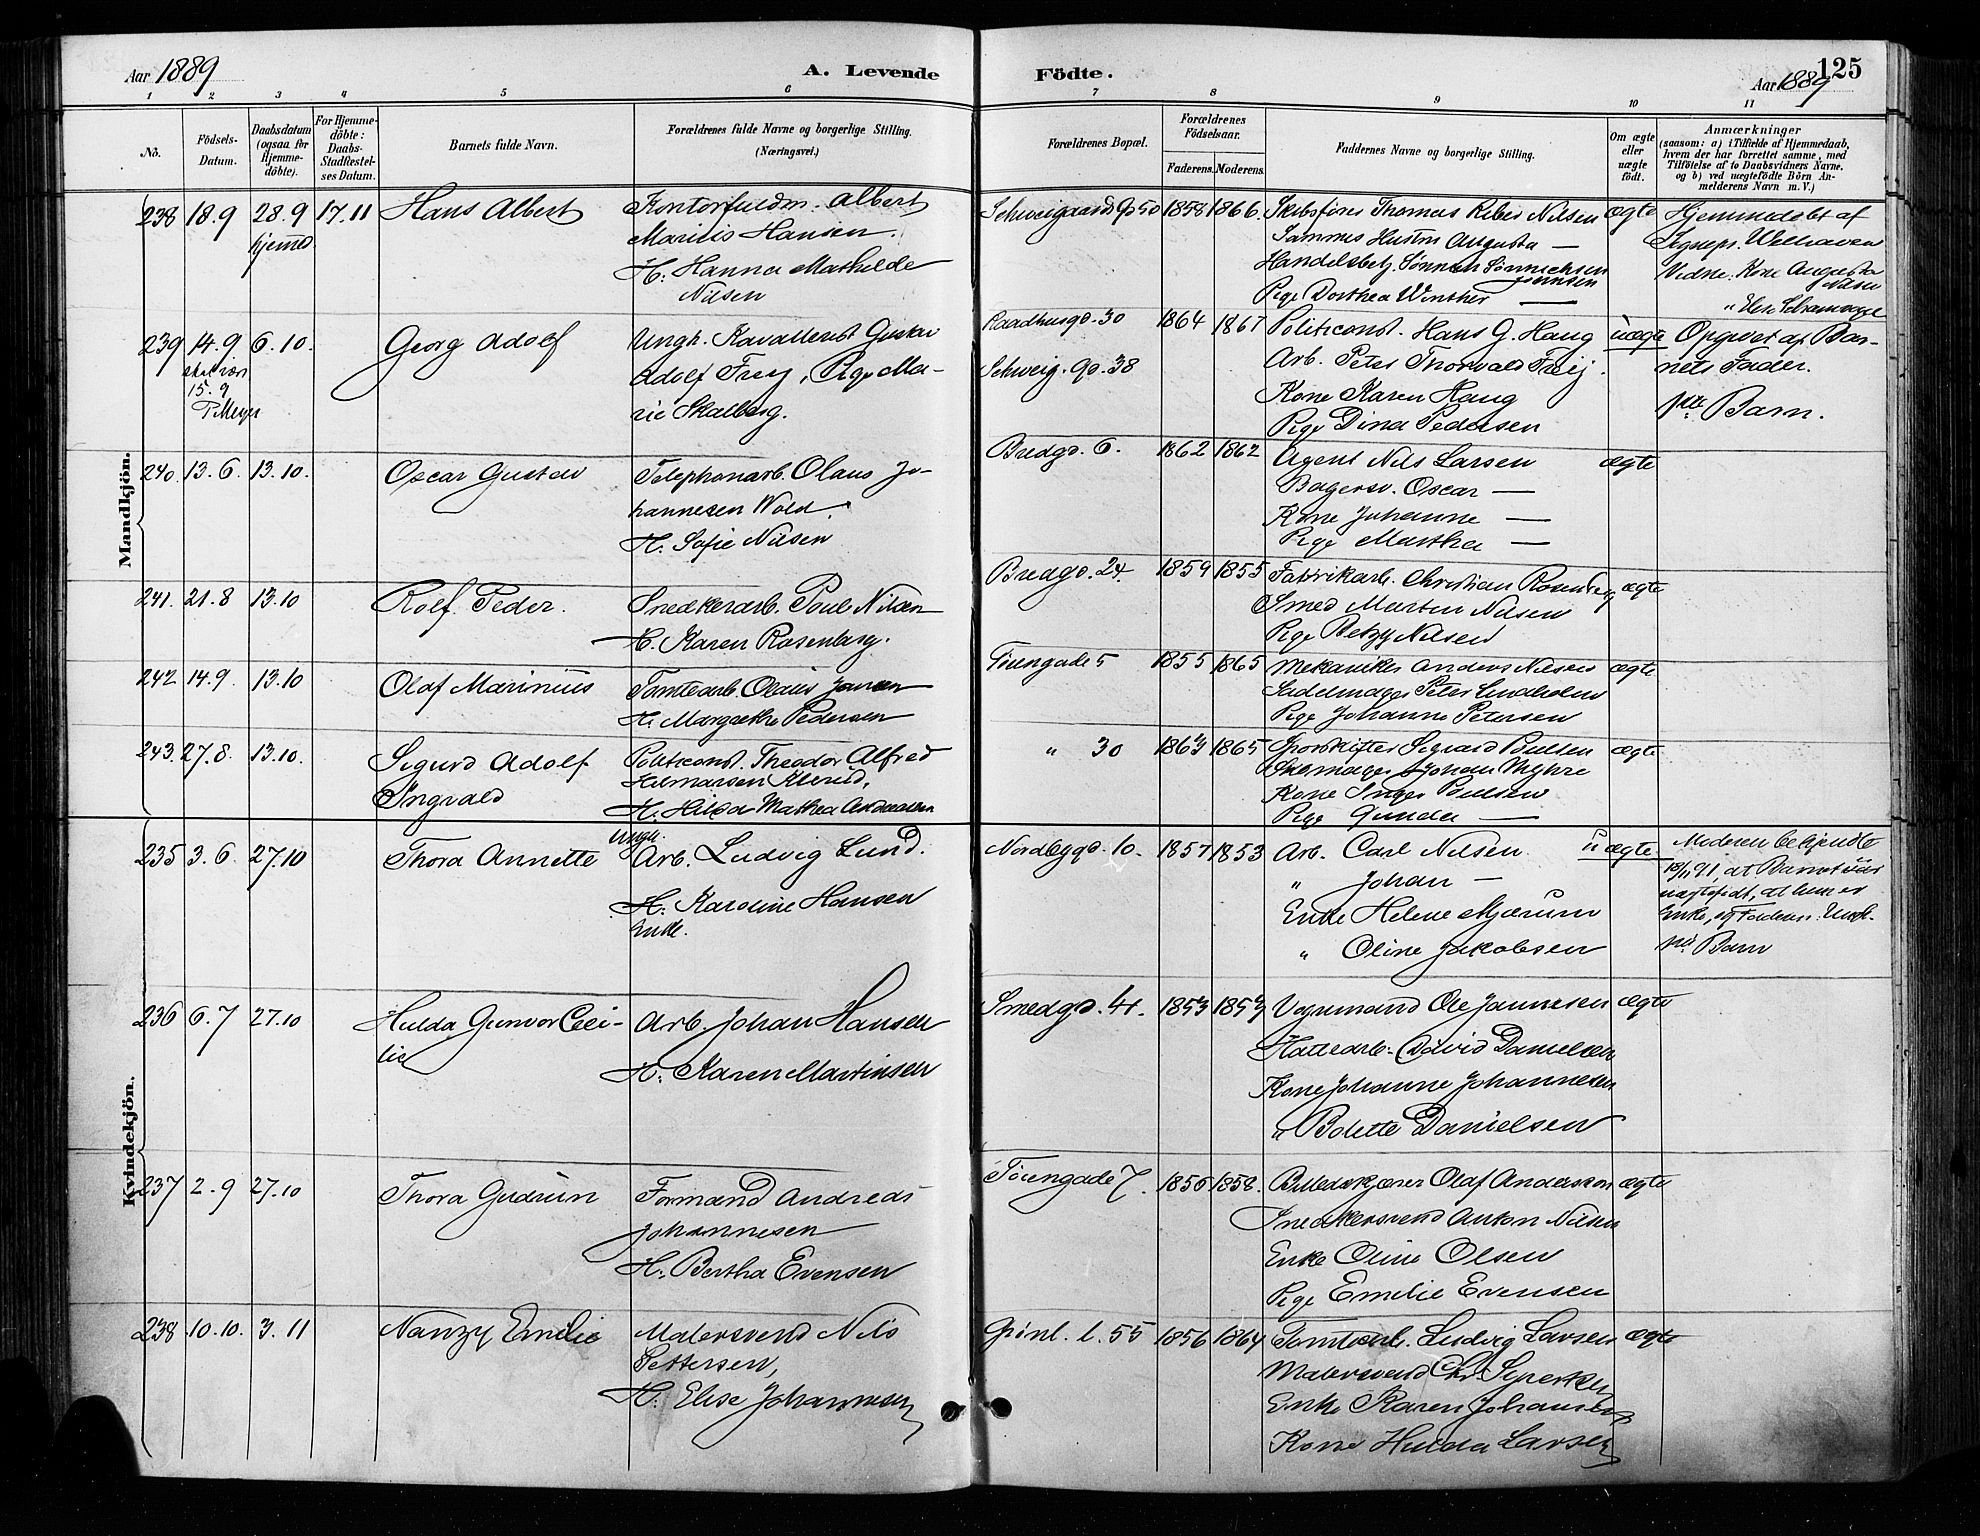 Aar 1889
A. Levende
Födte.
125
Aar 1889
1 2 3 4 5 6 7 8 9 10 11
No.
Födsels-Datum.
Daabsdatum (ogsaa for Hjemme-döbte).
For Hjemme-döbte: Daabs-Stadfæstel-ses Datum.
Barnets fulde Navn.
Forældrenes fulde Navne og borgerlige Stilling.
(Næringsvei.)
Forældrenes Bopæl.
Forældrenes Födselsaar.
Faderens. Moderens.
Faddernes Navne og borgerlige Stilling.
Om ægte eller uægte födt.
Anmærkninger
(saasom: a) i Tilfælde af Hjemmedaab, hvem der har forrettet samme, med Tilföielse af to Daabsvidners Navne, og b) ved uægtefödte Börn An-melderens Navn m. V.)
Mandkjön.
238 18.9 28.9 hjemd 17.11 Hans Albert
Kontorfuldm. Albert
Maritis Hansen.
H. Hanna Mathilde
Nilsen
Schweigaards g. 50 1858 1866.
Skibsfører Thomas Ribei Nilsen
Sammes Hustru Augusta —
Handelsbetj. Sønnich Sønnichsen
Pige Dorthea Winther —
ægte
Hjemmedøbt af
Welhaven
Vidne: Kone Augusta
Nilsen
239 14.9 6.10. Georg Adolf
15.9
P. Meyer
Ungk. Kavallerist Gustav
Adolf Frey, Pige Ma-
rie Skalberg.
Raadhusgd. 30 1864 1867
Schweig. gd. 38
Politiconst. Hans G. Haug
Arb. Peter Thorvald Freij.
Kone Karen Haug
Pige Dina Pedersen
uægte
Opgivet af Bar-
nets Fader.
Barn.
240. 13.6. 13.10. Oscar Gustav
Telephonarb. Olaus Jo-
hannesen Wold.
H. Sofie Nilsen
Bredgd. 6. 1862 1862
Agent Nils Larsen
Bagersv. Oscar —
Kone Johanne —
Pige Martha —
ægte
241. 21.8 13.10 Rolf Peder.
Snedkerarb. Poul Nilsen
H. Karen Rosenberg.
Bredgd. 24. 1859 1855
Fabrikarb. Christian Rosenberg
Smed Martin Nilsen
Pige Betzy Nilsen
ægte
242 14.9. 13.10 Olaf Marinius
Tomtearb. Olaus Jansen
H. Margrethe Pedersen
Töiengade 5 1855 1865
Mekaniker Anders Nilsen
Sadelmager Peter Lindholm
Pige Johanne Petersen
ægte
243. 27.8. 13.10. Sigurd Adolf
Ingvald
Politiconst. Theodor Alfred
Hilmarsen
H. Hilda Mathea
„ 30 1863 1865
Sporskifter Sigvard Poulsen
Skomager Johan Myhre
Kone Inga Poulsen
Pige Gunda —
ægte
Kvindekjön.
235 3.6. 27.10 Thora Annette
Ungk.
Arb. Ludvig Lund.
H. Karoline Hansen
Enke.
Nordbygd. 10. 1857 1853
Arb. Carl Nilsen
„ Johan —
Enke Helene Mjærum
„ Oline Jakobsen
uægte
Moderen bekjendte
18/11 91, at Barnet var
uægtefødt, at hun er
Enke, og Faderen: Ungk.
Barn
236 6.7 27.10 Hulda Gunvor Ceci-
lie
Arb. Johan Hansen
H. Karen Martinsen
Smedgd. 41. 1853 1853
Vognmand Ole Jannesen
Hattearb. David Danielsen
Kone Johanne Johannesen
„ Bolette Danielsen
ægte
237 2.9 27.10 Thora Gudrun
Formand Andreas
Johannesen
H. Bertha Evensen
Töiengade 7. 1850 1858.
Billedskjærer Olaf Anderson
Snedkersvend Anton Nilsen
Enke Oline Olsen
Pige Emilie Evensen
ægte
238 10.10. 3.11 Nanzy Emilie
Malersvend Nils
Pettersen,
H. Elise Johannesen
Grönl. l. 55 1856 1864
Tomtearb. Ludvig Larsen
Malersvend Chr.
Enke Karen Johansen
Kone Hulda Larsen
ægte